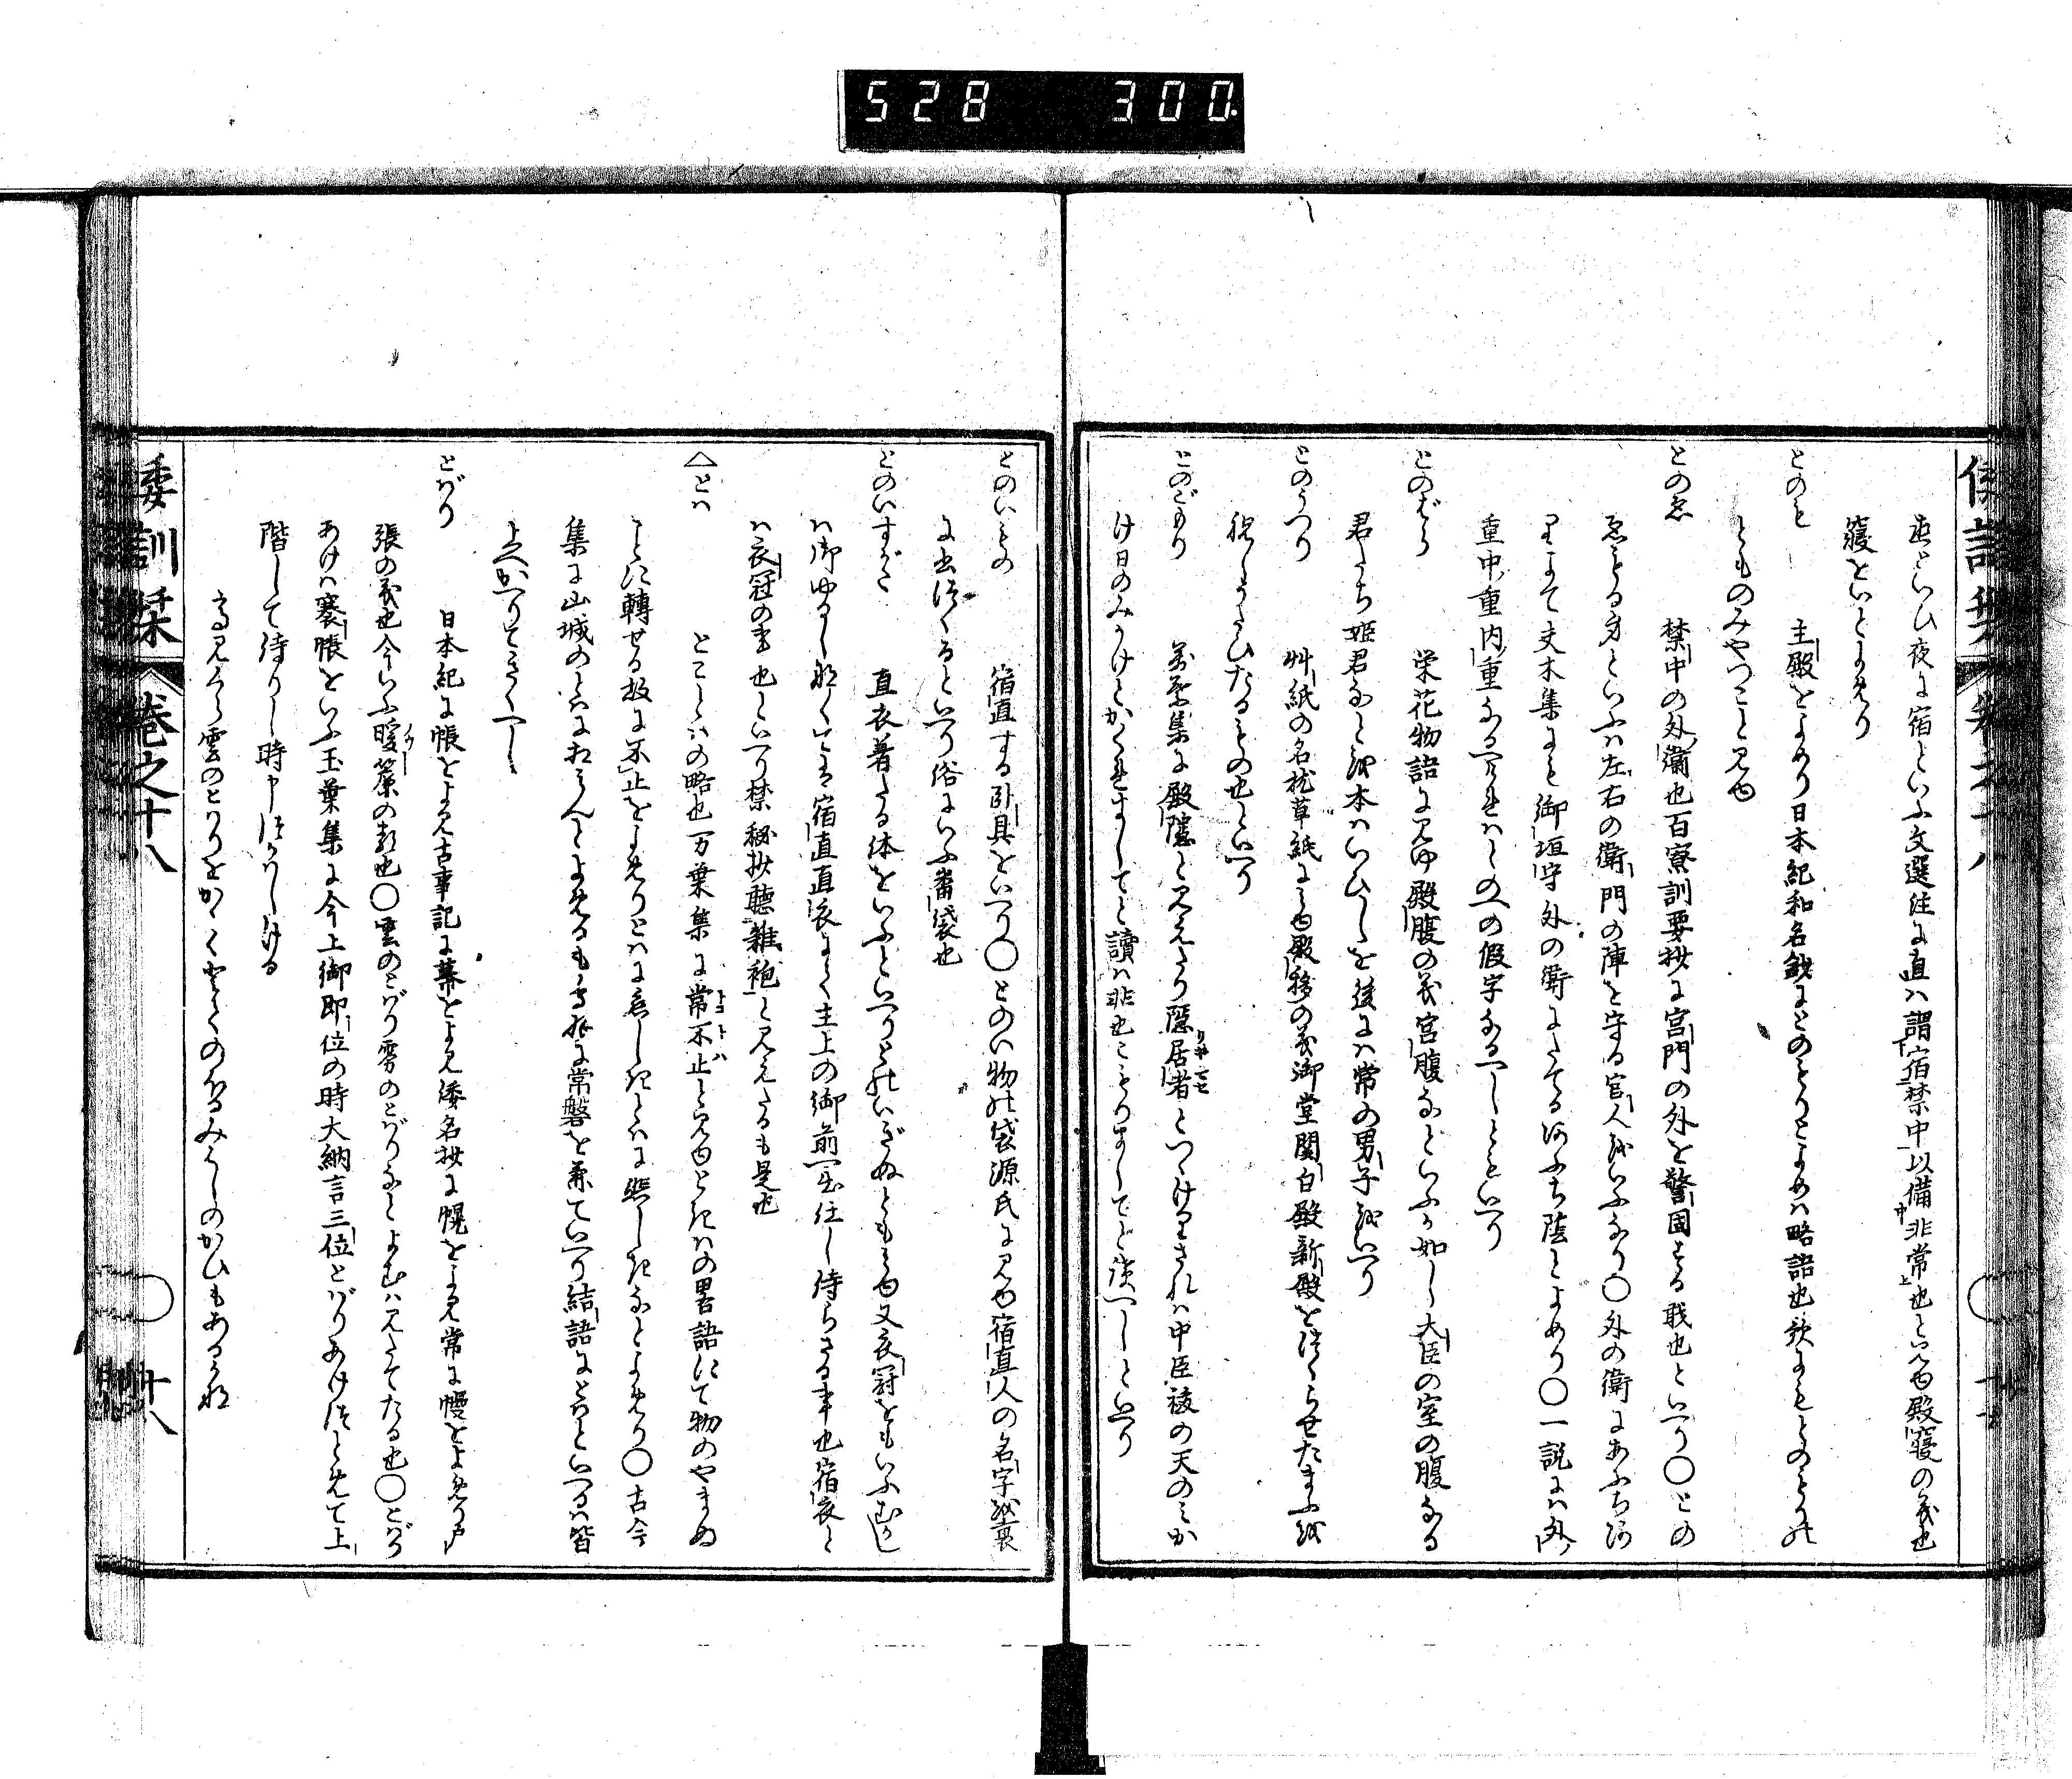 528 300.
直といひ夜に宿といふ文選注に直ハ謂宿禁中以備非常也と見ゆ殿寝の義也
寝をいとよめり
とのも 主殿をよめり日本紀和名鈔にとのもりとよめハ略語也歌にもとのもりの
とものみやつこと見ゆ
とのゑ 禁中の外衛也百寮訓要抄に宮門の外を警固する職也といへり〇との
ゑもる身といふハ左右の衛門の陣を守る官人をいふなり〇外の衛にあふちの
りよて夫木集にも御垣守外の衛にたてるあふち陰とよめり〇一説にハ外
重中重内重なるへけれハとのへの假字なるへしともいへり
とのばら 栄花物語に見ゆ殿腹の義宮腹などいふか如し大臣の室の腹なる
君たち姫君なとを本ハいひしを後にハ常の男子をいへり
とのうつり 艸紙の名枕草紙に見ゆ殿移の義御堂関白殿新殿を作らせたまふを
祝しうたひたるもの也といへり
とのごもり 万葉集に殿隠と見えたり隠居者とつゝけりされハ中臣祓の天のみか
け日のみかけとかくれましてと讀ハ非也こもりましてと読へしといへり
とのいもの 宿直する臥具をいへり〇とのい物の袋源氏に見ゆ宿直人の名字を裏
に出はへるといへり俗にいふ番袋也
とのいすがた 直衣着たる体をいふといへりとのいぎぬとも見ゆ又衣冠をもいふむかし
ハ御ゆるしなくてハ宿直直衣にて主上の御前へ出仕し侍らさる事也宿衣と
ハ衣冠の事也といへり禁秘抄聴雑袍と見えたるも是也
△とは とことはの略也万葉集に常不止と見ゆときはの畧語にて物のやまぬ
ことに轉せる故に不止をよめりとはに恋しきとはに悲しきなとよめり〇古今
集に山城のとはにあひみんとよめるも鳥羽に常磐を兼ていへり結語にとはといへるハ皆
上へかへりてきくへし
とばり 日本紀に帳をよみ古事記に幕をよみ倭名抄に幌をよみ常に幔をよめり戸
張の義也今いふ暖簾の類也〇雲のとばり霧のとばりなとよむハ見たてたる也〇とばり
あけハ褰帳をいふ玉葉集に今上御即位の時大納言三位とばりあけつとめて上
階して待りし時申つかハしける
高みくら雲のとはりをかゝくとてのほるみはしのかひもあるかな
倭訓栞 巻之十八 十八